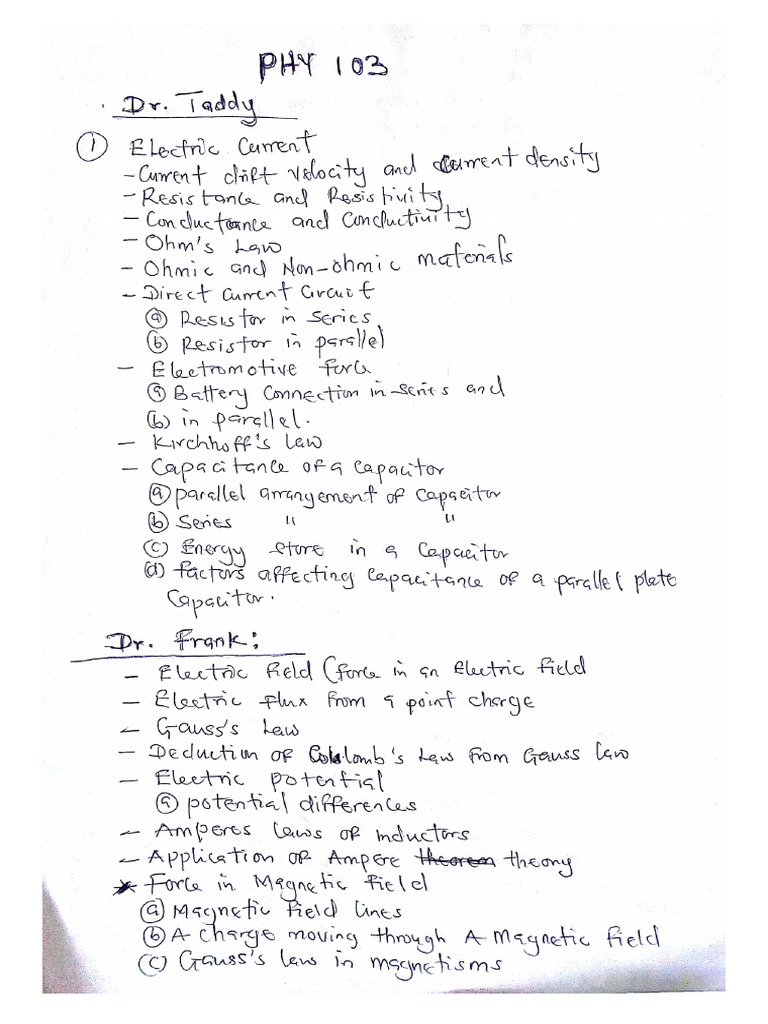 PHY 103
Dr. Taddy
① Electric Current
- Current drift velocity and Current density
- Resistance and Resistivity
- Conductance and Conductivity
- Ohm's Law
- Ohmic and Non-ohmic materials
- Direct Current Circuit
ⓐ Resistor in series
ⓑ Resistor in parallel
- Electromotive force
ⓐ Battery Connection in series and
(b) in parallel.
- Kirchhoff's law
- Capacitance of a capacitor
ⓐ parallel arrangement of Capacitor
ⓑ Series " "
(c) Energy store in a Capacitor
(d) factors affecting Capacitance of a parallel plate
Capacitor.
Dr. Frank:
- Electric field (force in an Electric field
- Electric flux from a point charge
- Gauss's Law
- Deduction of Coulomb's Law from Gauss law
- Electric potential
ⓐ potential differences
- Amperes laws of inductors
- Application of Ampere theorem theory
* Force in Magnetic field
ⓐ Magnetic field lines
ⓑ A charge moving through A Magnetic field
(c) Gauss's law in magnetisms